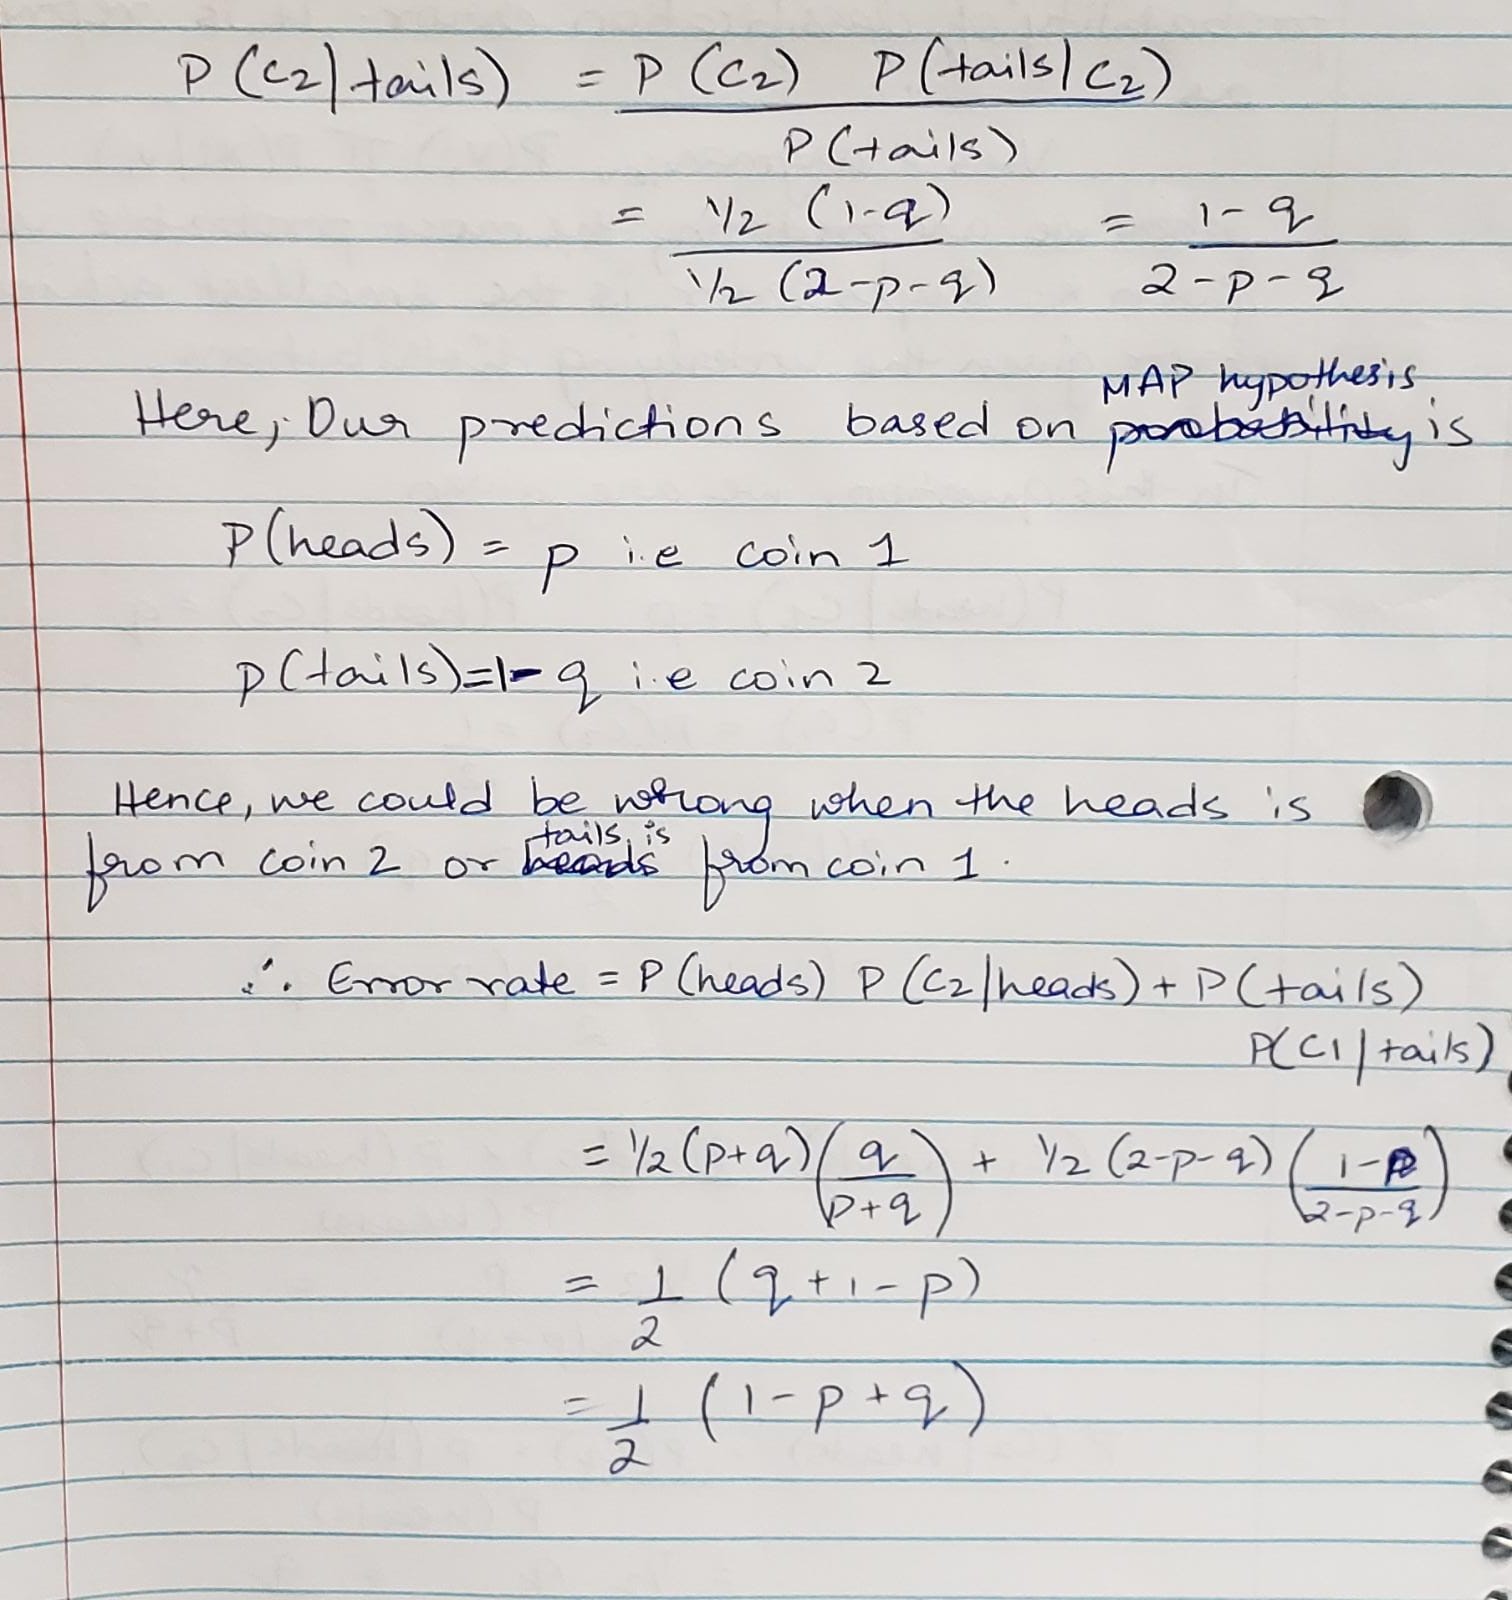 P(C2|tails) = P(C2) P(tails|C2)
P(tails)
= 1/2 (1-q) = 1-q
1/2 (2-p-q) 2-p-q
MAP hypothesis
Here, Our predictions based on probability is
P(heads) = p i.e coin 1
P(tails)=1-q i.e coin 2
Hence, we could be wrong when the heads is
tails is
from coin 2 or heads from coin 1.
∴ Error rate = P(heads) P(C2|heads) + P(tails)
P(C1|tails)
= 1/2 (p+q) (q/p+q) + 1/2 (2-p-q) (1-p/2-p-q)
= 1/2 (q+1-p)
= 1/2 (1-p+q)